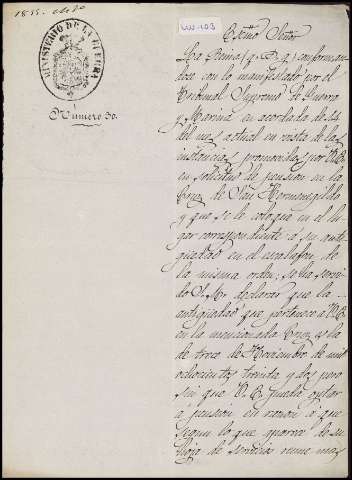 MINISTERIO DE LA GUERRA
Número 30.
Exmo Señor
La Reina (q. D. g.) conforman
dose con lo manifestado por el
Tribunal Supremo de Guerra
y Marina en acordada de 14
del mes actual en vista de las
instancias promovidas por V.E.
en solicitud de pension en la
Cruz de San Hermenegildo
y que se le coloque en el lu
gar correspondiente á su anti
güedad en el escalafon de
la misma orden, se ha servi
do S. M. declarar que la
antigüedad que pertenece á V.E.
en la mencionada Cruz es la
de trece de Noviembre de mil
ochocientos treinta y dos pero
sin que V. E. pueda optar
á pension en razon á que
segun lo que aparece de su
hoja de servicios reune mas